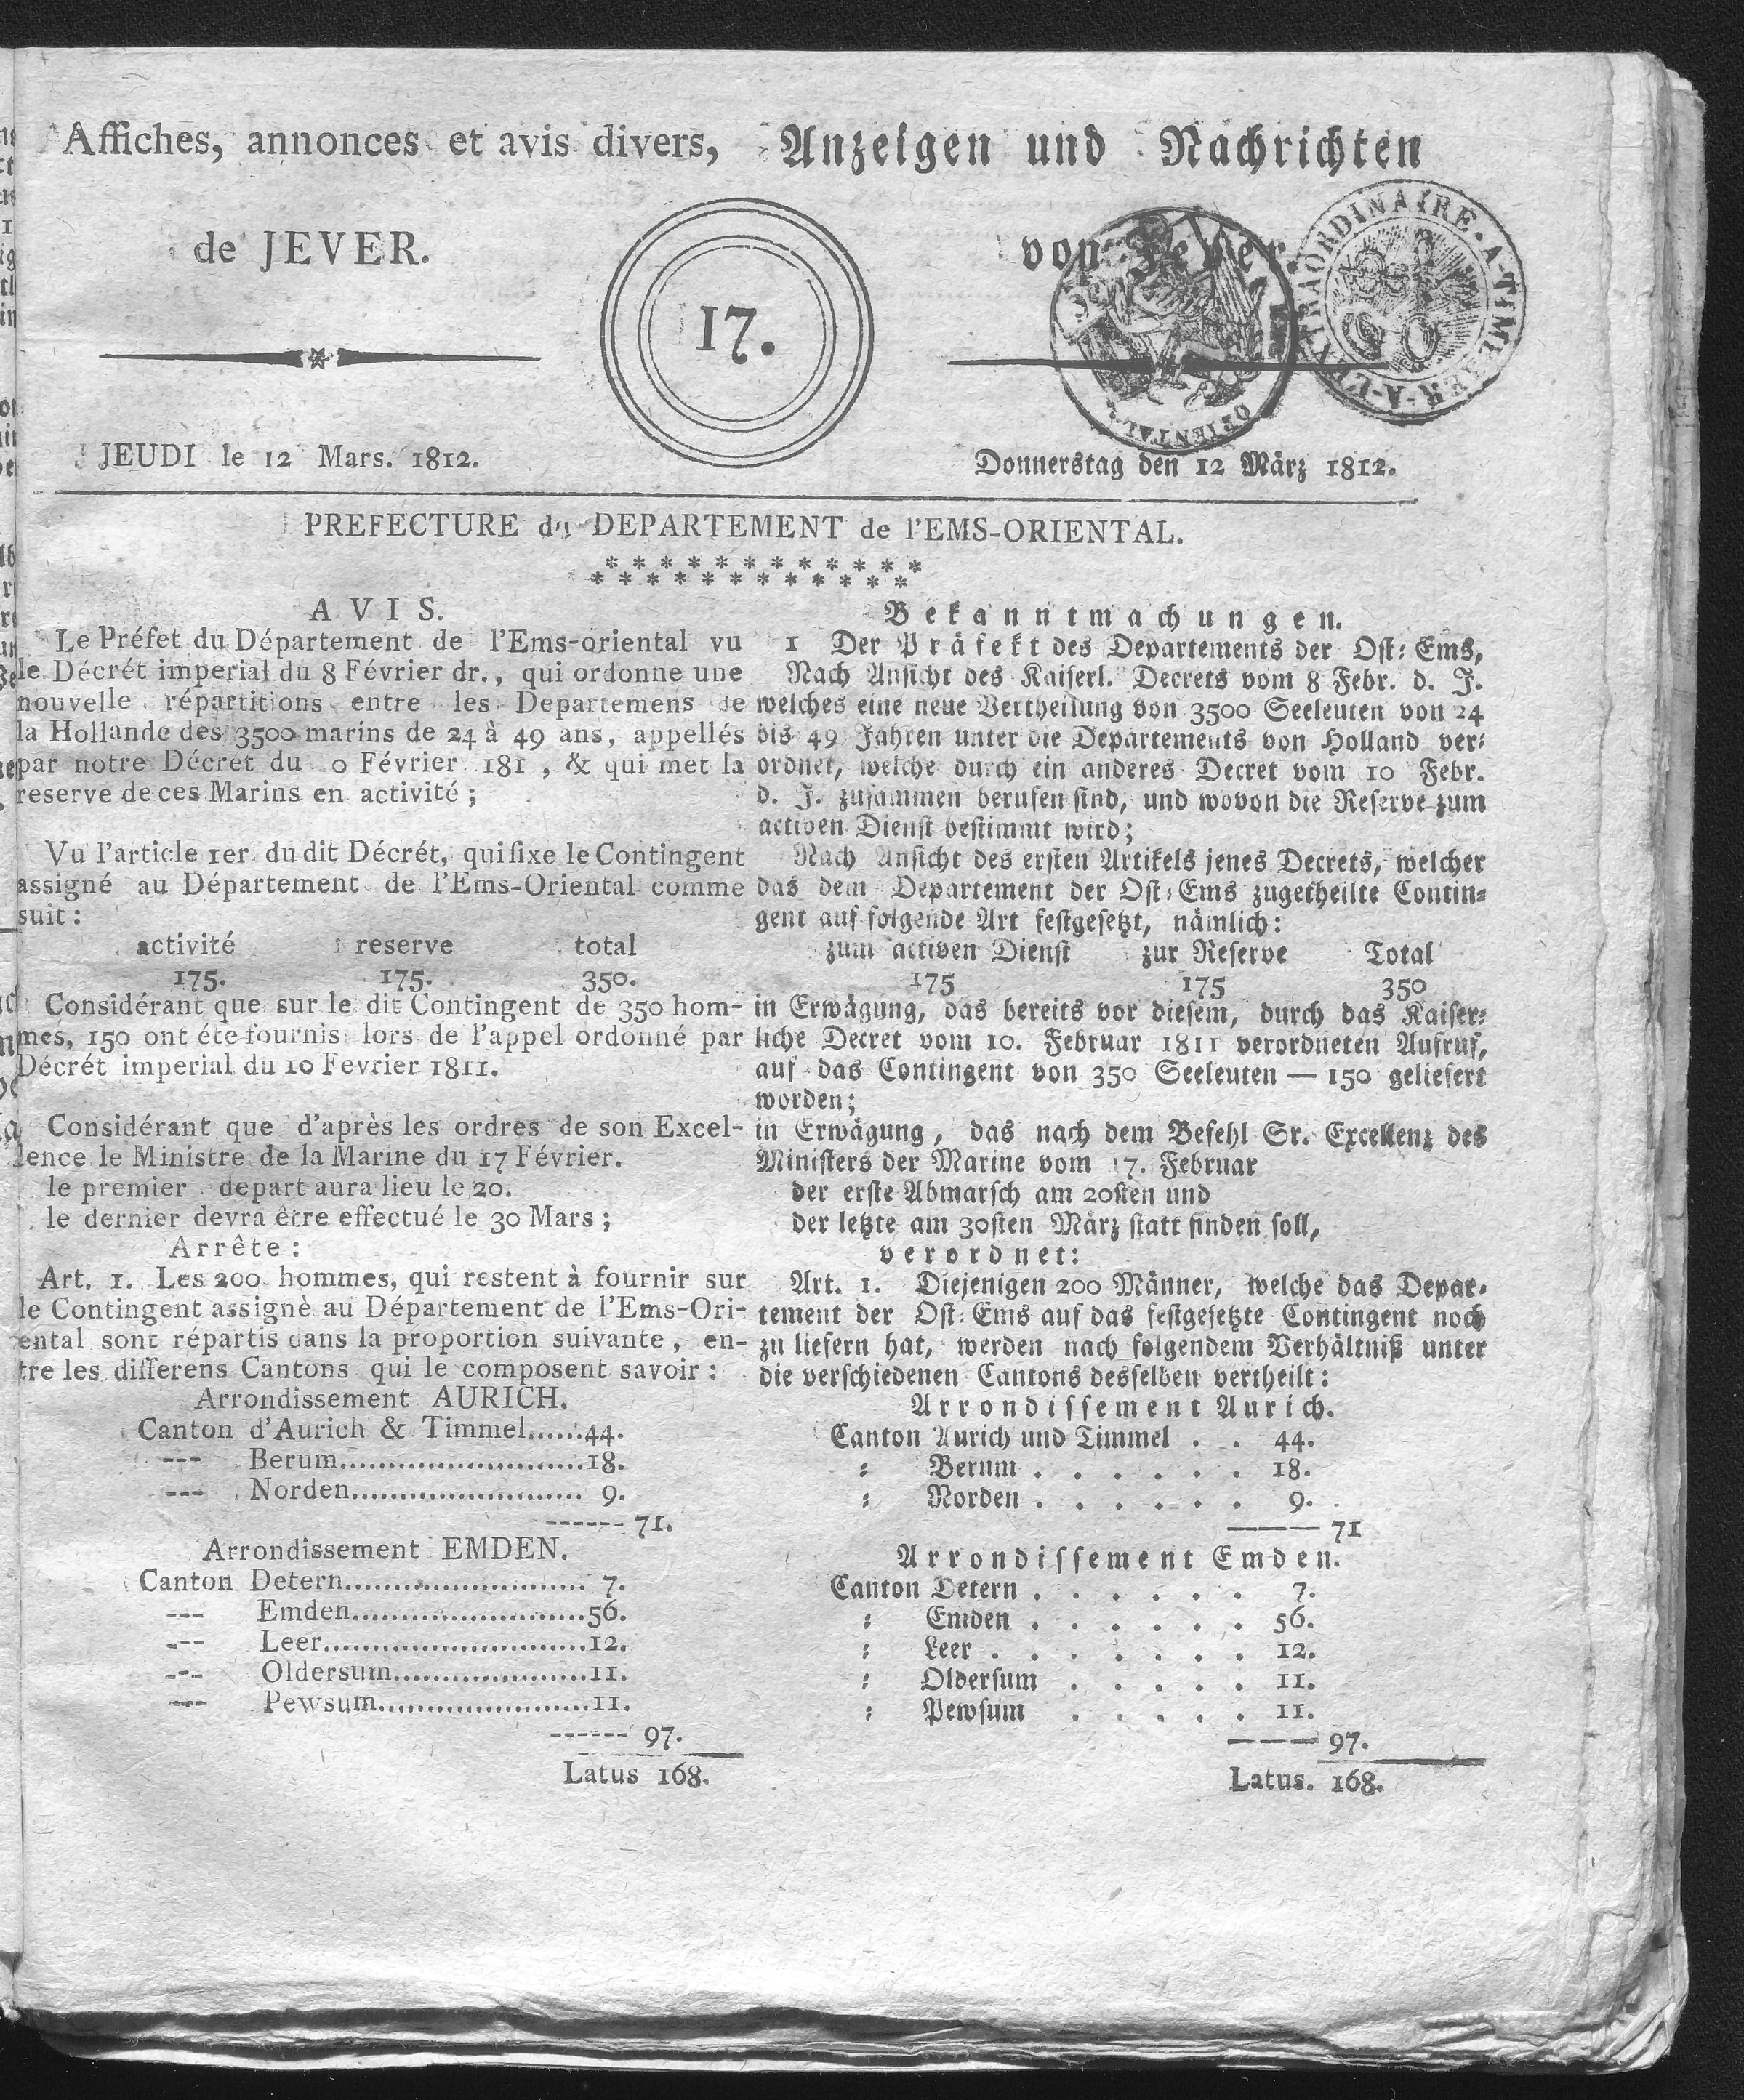 Affiches, annonces et avis divers,
de JEVER.
17.
JEUDI le 12 Mars. 1812.
Anzeigen und Nachrichten
von Jever.
EXTRAORDINAIRE.
ORIENTAL
Donnerstag den 12 März 1812.
PREFECTURE du DEPARTEMENT de l'EMS-ORIENTAL.
* * * * * * * * * * * *
* * * * * * * * * * * *
AVIS.
Le Préfet du Département de l'Ems-oriental vu
le Décrét imperial du 8 Février dr., qui ordonne une
nouvelle répartitions entre les Departemens de
la Hollande des 3500 marins de 24 à 49 ans, appellés
par notre Décret du 0 Février 181 , & qui met la
reserve de ces Marins en activité ;
Vu l'article 1er du dit Décrét, qui fixe le Contingent
assigné au Département de l'Ems-Oriental comme
suit :
activité reserve total
175. 175. 350.
Considérant que sur le dit Contingent de 350 hom-
mes, 150 ont éte fournis lors de l'appel ordonné par
Décrét imperial du 10 Fevrier 1811.
Considérant que d'après les ordres de son Excel-
lence le Ministre de la Marine du 17 Février.
le premier depart aura lieu le 20.
le dernier devra être effectué le 30 Mars ;
Arrête :
Art. 1. Les 200 hommes, qui restent à fournir sur
le Contingent assignè au Département de l'Ems-Ori-
ental sont répartis dans la proportion suivante , en-
tre les differens Cantons qui le composent savoir :
Arrondissement AURICH.
Canton d'Aurich & Timmel......44.
--- Berum.........................18.
--- Norden........................ 9.
------ 71.
Arrondissement EMDEN.
Canton Detern......................... 7.
--- Emden........................56.
--- Leer...........................12.
--- Oldersum....................11.
--- Pewsum......................11.
------ 97.
Latus 168.
Bekanntmachungen.
1 Der Präfekt des Departements der Ost: Ems,
Nach Ansicht des Kaiserl. Decrets vom 8 Febr. d. J.
welches eine neue Vertheilung von 3500 Seeleuten von 24
bis 49 Jahren unter die Departements von Holland ver:
ordnet, welche durch ein anderes Decret vom 10 Febr.
d. J. zusammen berufen sind, und wovon die Reserve zum
activen Dienst bestimmt wird;
Nach Ansicht des ersten Artikels jenes Decrets, welcher
das dem Departement der Ost: Ems zugetheilte Contin=
gent auf folgende Art festgesetzt, nämlich:
zum activen Dienst zur Reserve Total
175 175 350
in Erwägung, das bereits vor diesem, durch das Kaiser:
liche Decret vom 10. Februar 1811 verordneten Aufruf,
auf das Contingent von 350 Seeleuten — 150 geliefert
worden;
in Erwägung, das nach dem Befehl Sr. Excellenz des
Ministers der Marine vom 17. Februar
der erste Abmarsch am 20sten und
der letzte am 30sten März statt finden soll,
verordnet:
Art. 1. Diejenigen 200 Männer, welche das Depar=
tement der Ost: Ems auf das festgesetzte Contingent noch
zu liefern hat, werden nach folgendem Verhältniß unter
die verschiedenen Cantons desselben vertheilt:
Arrondissement Aurich.
Canton Aurich und Timmel . . 44.
: Berum . . . . . . 18.
: Norden . . . . . . 9.
——— 71
Arrondissement Emden.
Canton Detern . . . . . . 7.
: Emden . . . . . . 56.
: Leer . . . . . . . 12.
: Oldersum . . . . . 11.
: Pewsum . . . . . 11.
——— 97.
Latus. 168.